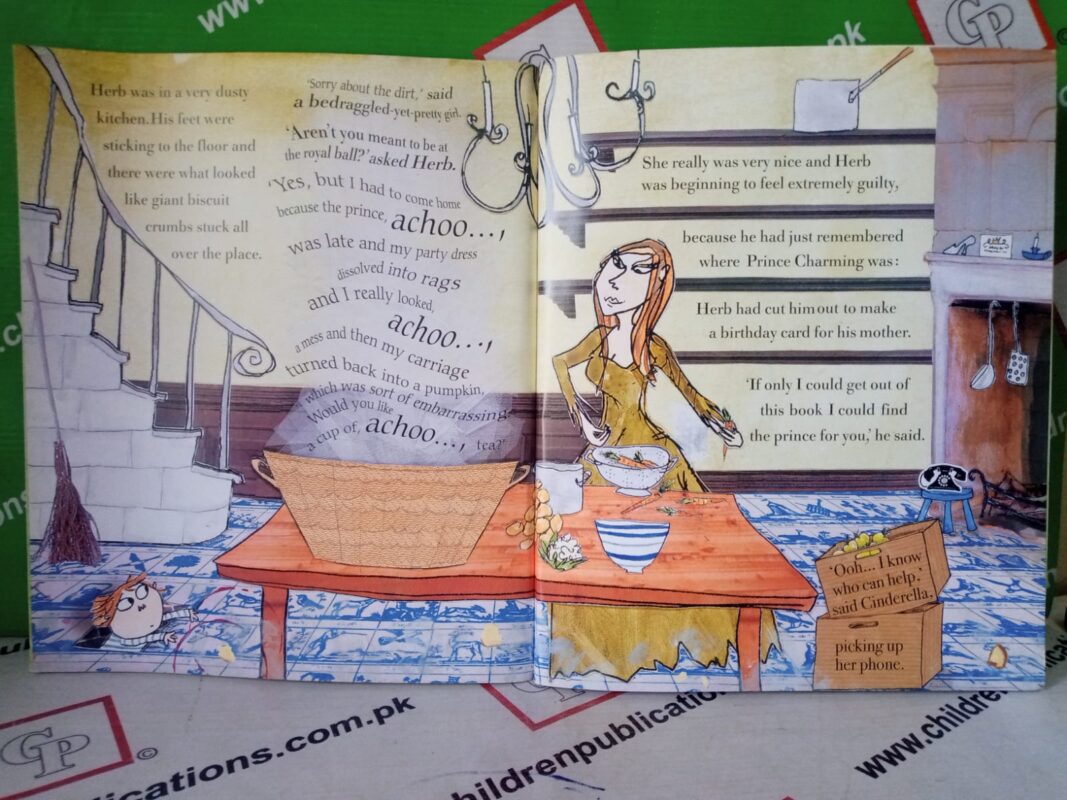 www.
.pk
GP
GP
©
Herb was in a very dusty
kitchen. His feet were
sticking to the floor and
there were what looked
like giant biscuit
crumbs stuck all
over the place.
'Sorry about the dirt,' said
a bedraggled-yet-pretty girl.
'Aren't you meant to be at
the royal ball?' asked Herb.
'Yes, but I had to come home
because the prince, achoo...,
was late and my party dress
dissolved into rags
and I really looked,
achoo...,
a mess and then my carriage
turned back into a pumpkin,
which was sort of embarrassing.
Would you like
a cup of, achoo..., tea?'
She really was very nice and Herb
was beginning to feel extremely guilty,
because he had just remembered
where Prince Charming was:
Herb had cut him out to make
a birthday card for his mother.
'If only I could get out of
this book I could find
the prince for you,' he said.
'Ooh... I know
who can help,'
said Cinderella,
picking up
her phone.
GP
©
ications.com.pk
hildrenpublication
www.childre